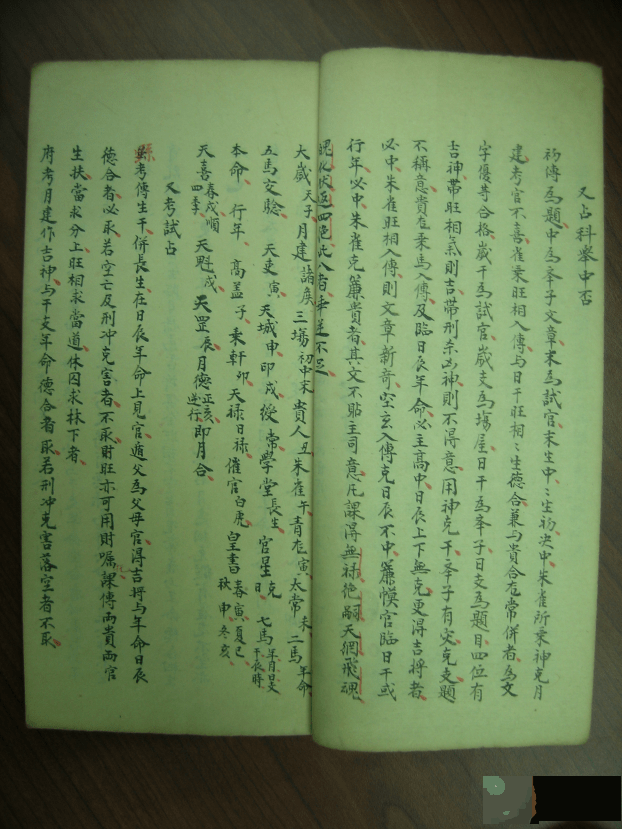 又占科舉中否
初傳為題中為举子文章末為試官末生中中生初决中朱雀所乘神克月
建考官不喜雀乘旺相入傳与日干旺相相生德合兼与貴合龙常併者為文
字優等合格嵗干為試官嵗支為塲屋日干為举子日支為題目四位有
吉神带旺相氣則吉带刑杀凶神則不得意用神克干举子有灾克支題
不稱意貴龙乘馬入傳及臨日辰年命必主高中日辰上下無克更得吉将者
必中朱雀旺相入傳則文章新奇空玄入傳克日辰不中簾幙官臨日干或
行年必中朱雀克簾貴者其文不貼主司意凡課得無禄绝嗣天網飛魂
魄化伏返四绝此入者幸逆不足
大嵗天子月建諸矦三塲初中末貴人丑朱雀午青龙寅太常未二馬年命
五馬交騐天吏寅天城申印戌綬常學堂長生官星克日七馬年月日支干辰時
本命行年高盖子乘軒卯天禄日禄催官白虎皇書春寅夏巳秋申冬亥
天喜春戌順四季天魁戌天罡辰月德正亥逆行即月合
又考試占
縣考傳生干併長生在日辰年命上見官遁父為父母官得吉将与年命日辰
德合者必取若空亡及刑冲克害者不取財旺亦可用財嘱課傳兩貴兩官
生扶當求分上旺相求當道休囚求林下者
府考月建作吉神与干支年命德合者取若刑冲克害落空者不取